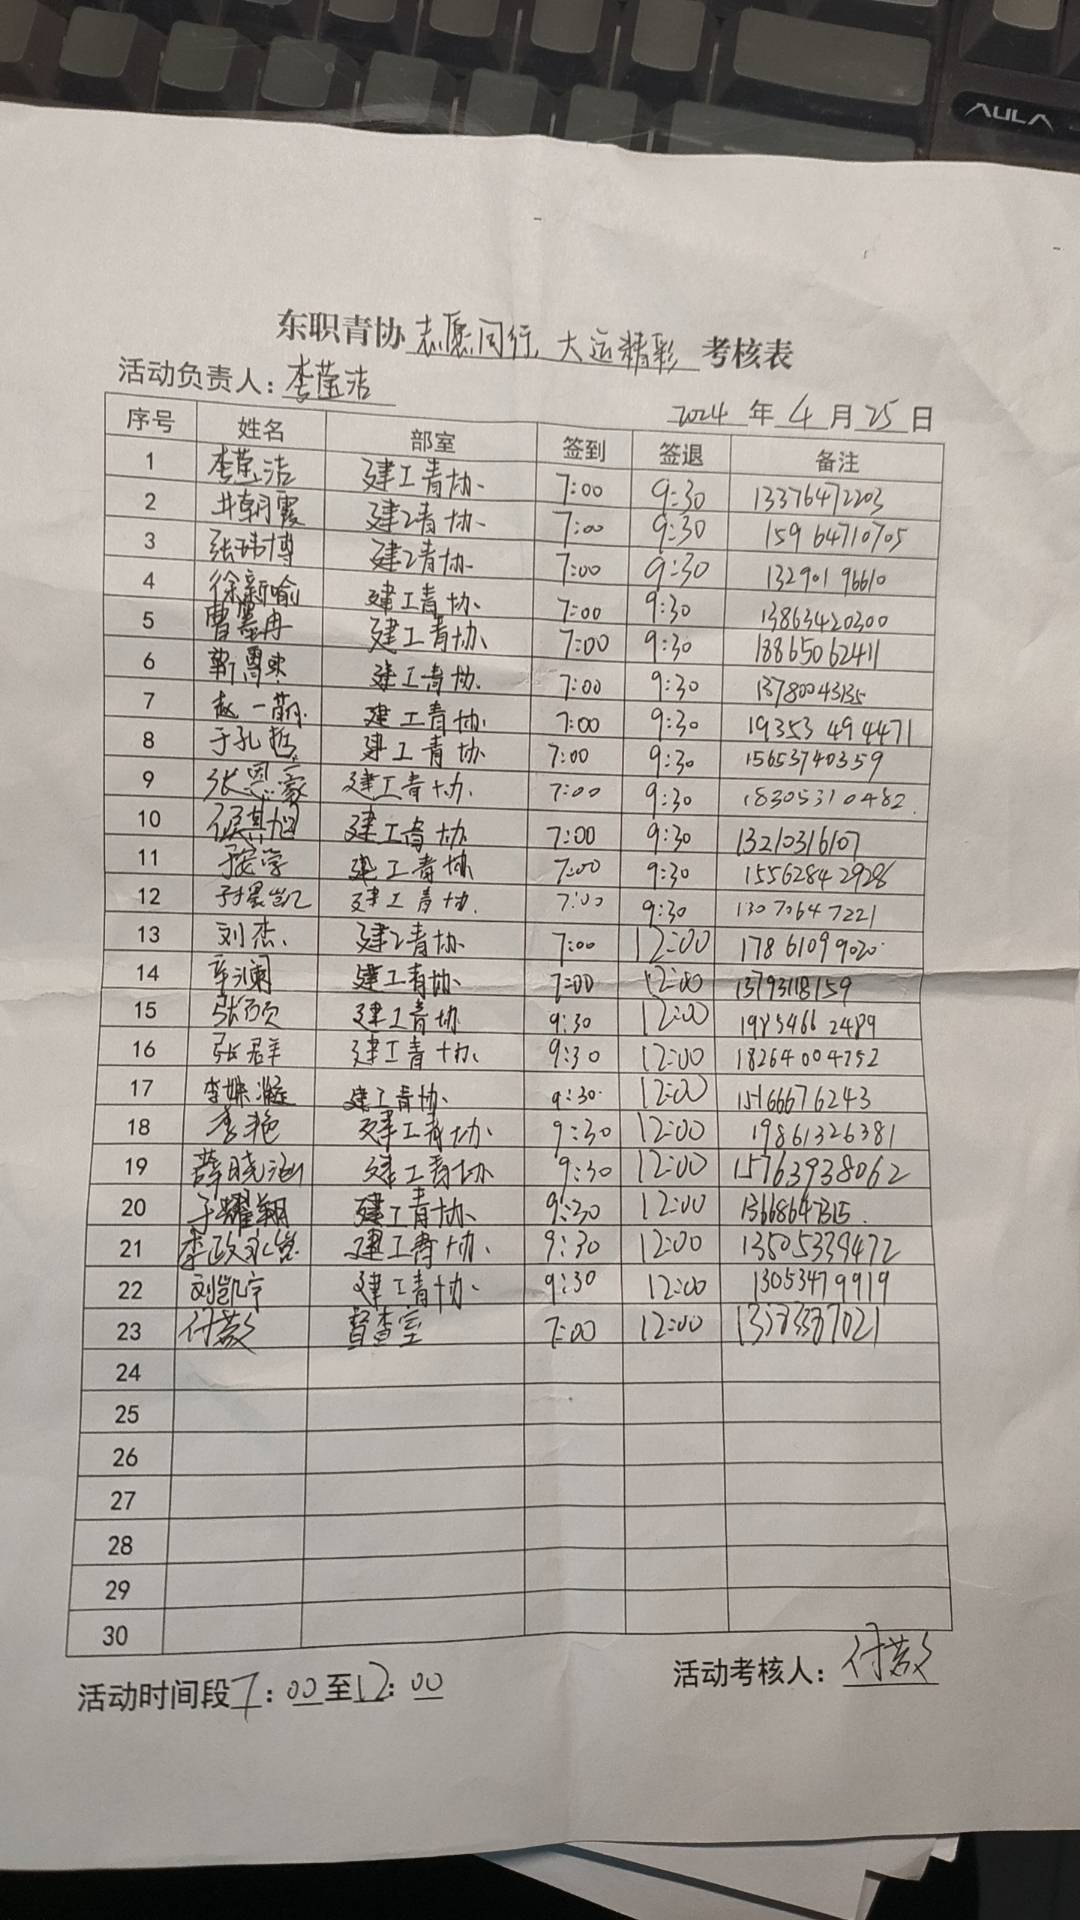 AULA
东职青协志愿同行,大运精彩考核表
活动负责人:李莹洁
2024年4月25日
序号 姓名 部室 签到 签退 备注
1 李莹洁 建工青协 7:00 9:30 13376472203
2 井朝霞 建工青协 7:00 9:30 15964710705
3 张玮博 建工青协 7:00 9:30 13290196610
4 徐新喻 建工青协 7:00 9:30 13863420300
5 曹墨冉 建工青协 7:00 9:30 18865062411
6 建工青协 7:00 9:30 13780043135
7 赵一 建工青协 7:00 9:30 19353494471
8 于孔哲 建工青协 7:00 9:30 15653740359
9 张恩豪 建工青协 7:00 9:30 18305310482
10 侯其旭 建工青协 7:00 9:30 13210316107
11 建工青协 7:00 9:30 15562842928
12 建工青协 7:00 9:30 13070647221
13 刘杰 建工青协 7:00 12:00 17861099020
14 辛澜 建工青协 7:00 12:00 13793118159
15 张硕 建工青协 9:30 12:00 19854662489
16 张群 建工青协 9:30 12:00 18264004752
17 李姝凝 建工青协 9:30 12:00 15166676243
18 李艳 建工青协 9:30 12:00 19861326381
19 薛晓涵 建工青协 9:30 12:00 15763938062
20 于耀翔 建工青协 9:30 12:00 13668647315
21 李政 建工青协 9:30 12:00 13505339472
22 刘凯宇 建工青协 9:30 12:00 13053479919
23 付蔹 督查室 7:00 12:00
24
25
26
27
28
29
30
活动时间段7:00至12:00
活动考核人:付蔹